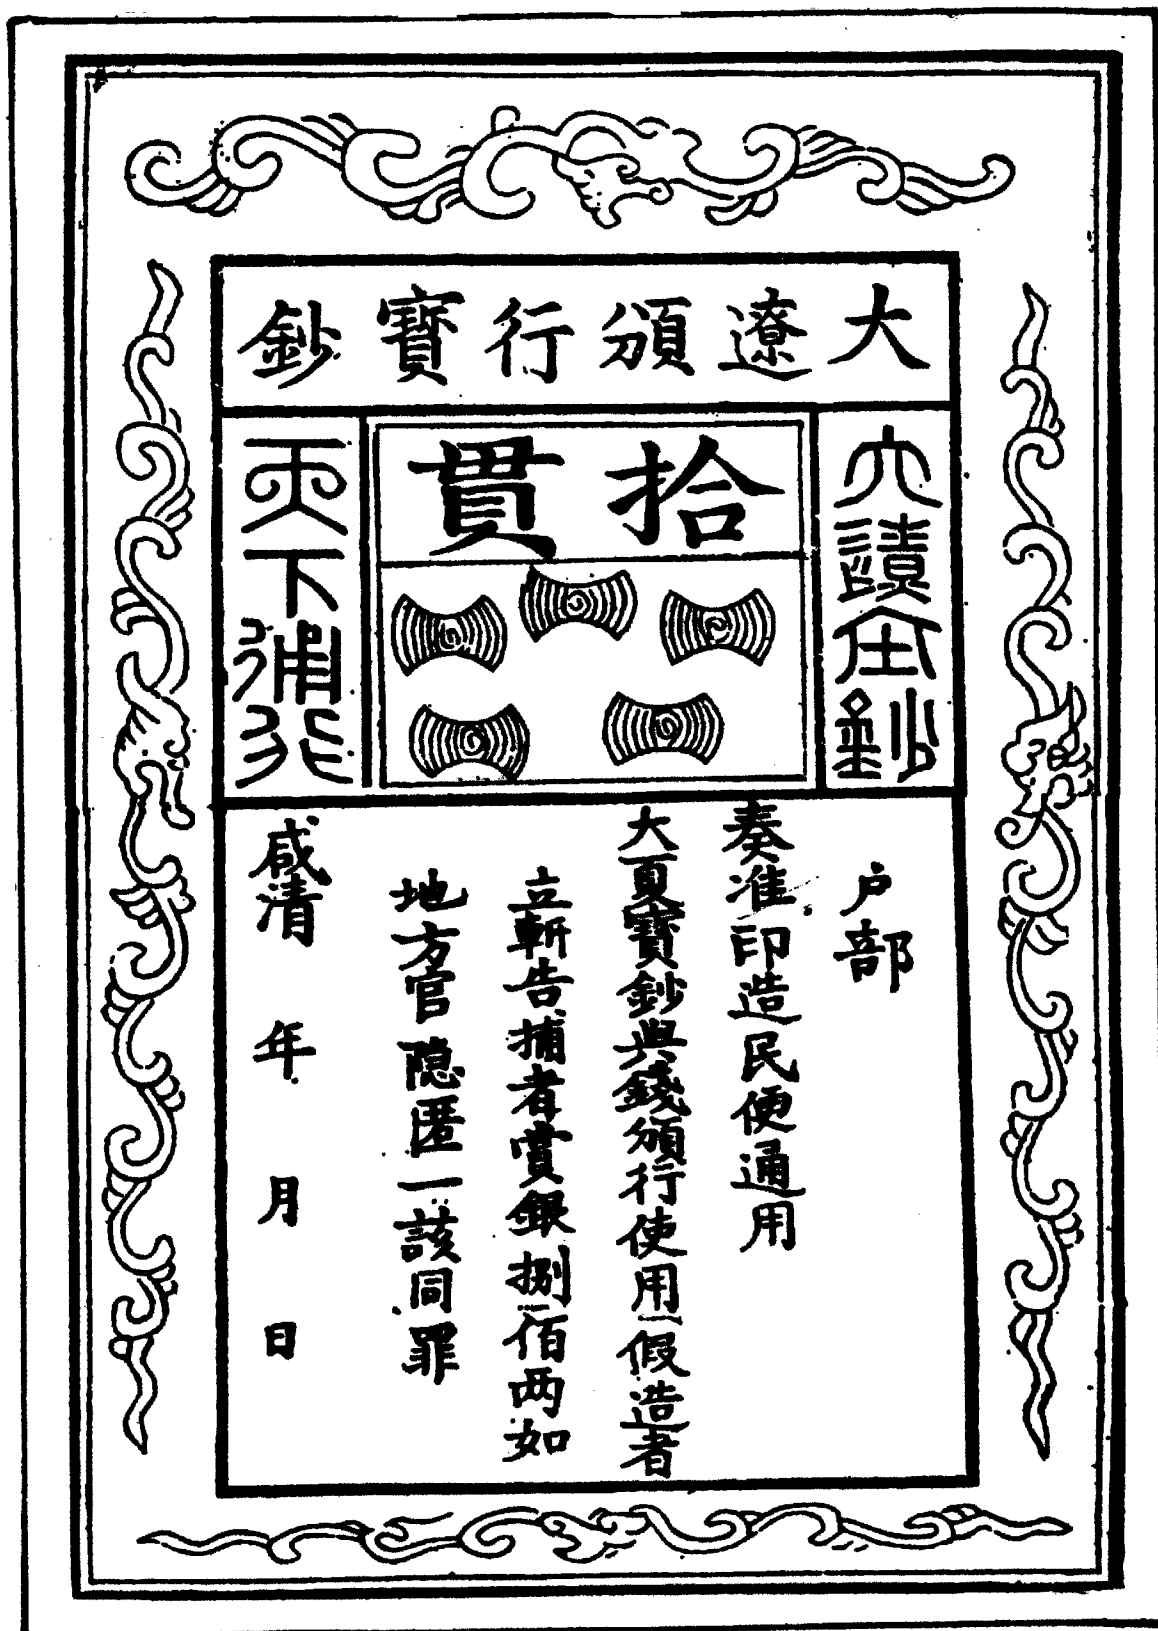 大遼頒行寶鈔
拾貫
天下
鈔
户部
奏准印造民便通用
大夏寶鈔與錢頒行使用假造者
立斬告捕者賞銀捌佰两如
地方官隐匿一該同罪
咸清 年 月 日